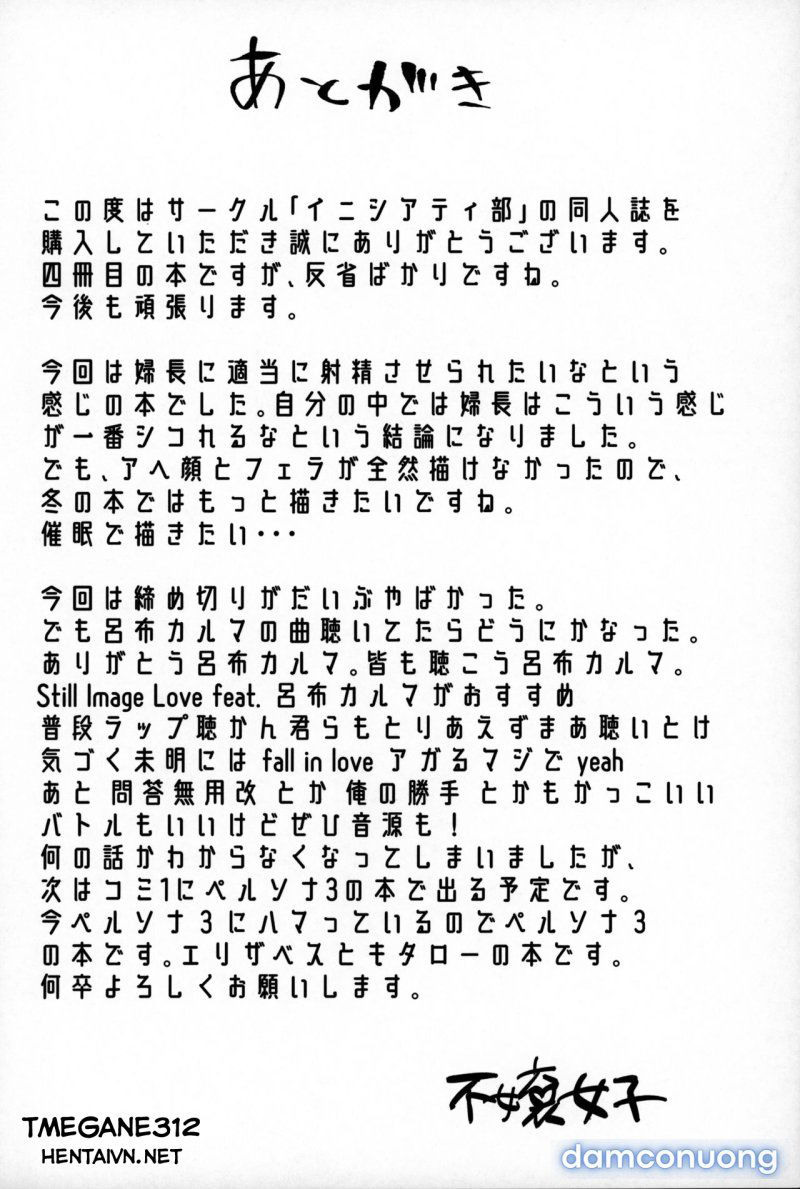 あとがき
この度はサークル「イニシアティ部」の同人誌を
購入していただき誠にありがとうございます。
四冊目の本ですが、反省ばかりですね。
今後も頑張ります。
今回は婦長に適当に射精させられたいなという
感じの本でした。自分の中では婦長はこういう感じ
が一番シコれるなという結論になりました。
でも、アヘ顔とフェラが全然描けなかったので、
冬の本ではもっと描きたいですね。
催眠で描きたい・・・
今回は締め切りがだいぶやばかった。
でも呂布カルマの曲聴いてたらどうにかなった。
ありがとう呂布カルマ。皆も聴こう呂布カルマ。
Still Image Love feat. 呂布カルマがおすすめ
普段ラップ聴かん君らもとりあえずまあ聴いとけ
気づく未明には fall in love アガるマジで yeah
あと 問答無用改 とか 俺の勝手 とかもかっこいい
バトルもいいけどぜひ音源も!
何の話かわからなくなってしまいましたが、
次はコミ1にペルソナ3の本で出る予定です。
今ペルソナ3にハマっているのでペルソナ3
の本です。エリザベスともタローの本です。
何卒よろしくお願いします。
不嬢女子
TMEGANE312
HENTAIVN.NET
damconuong